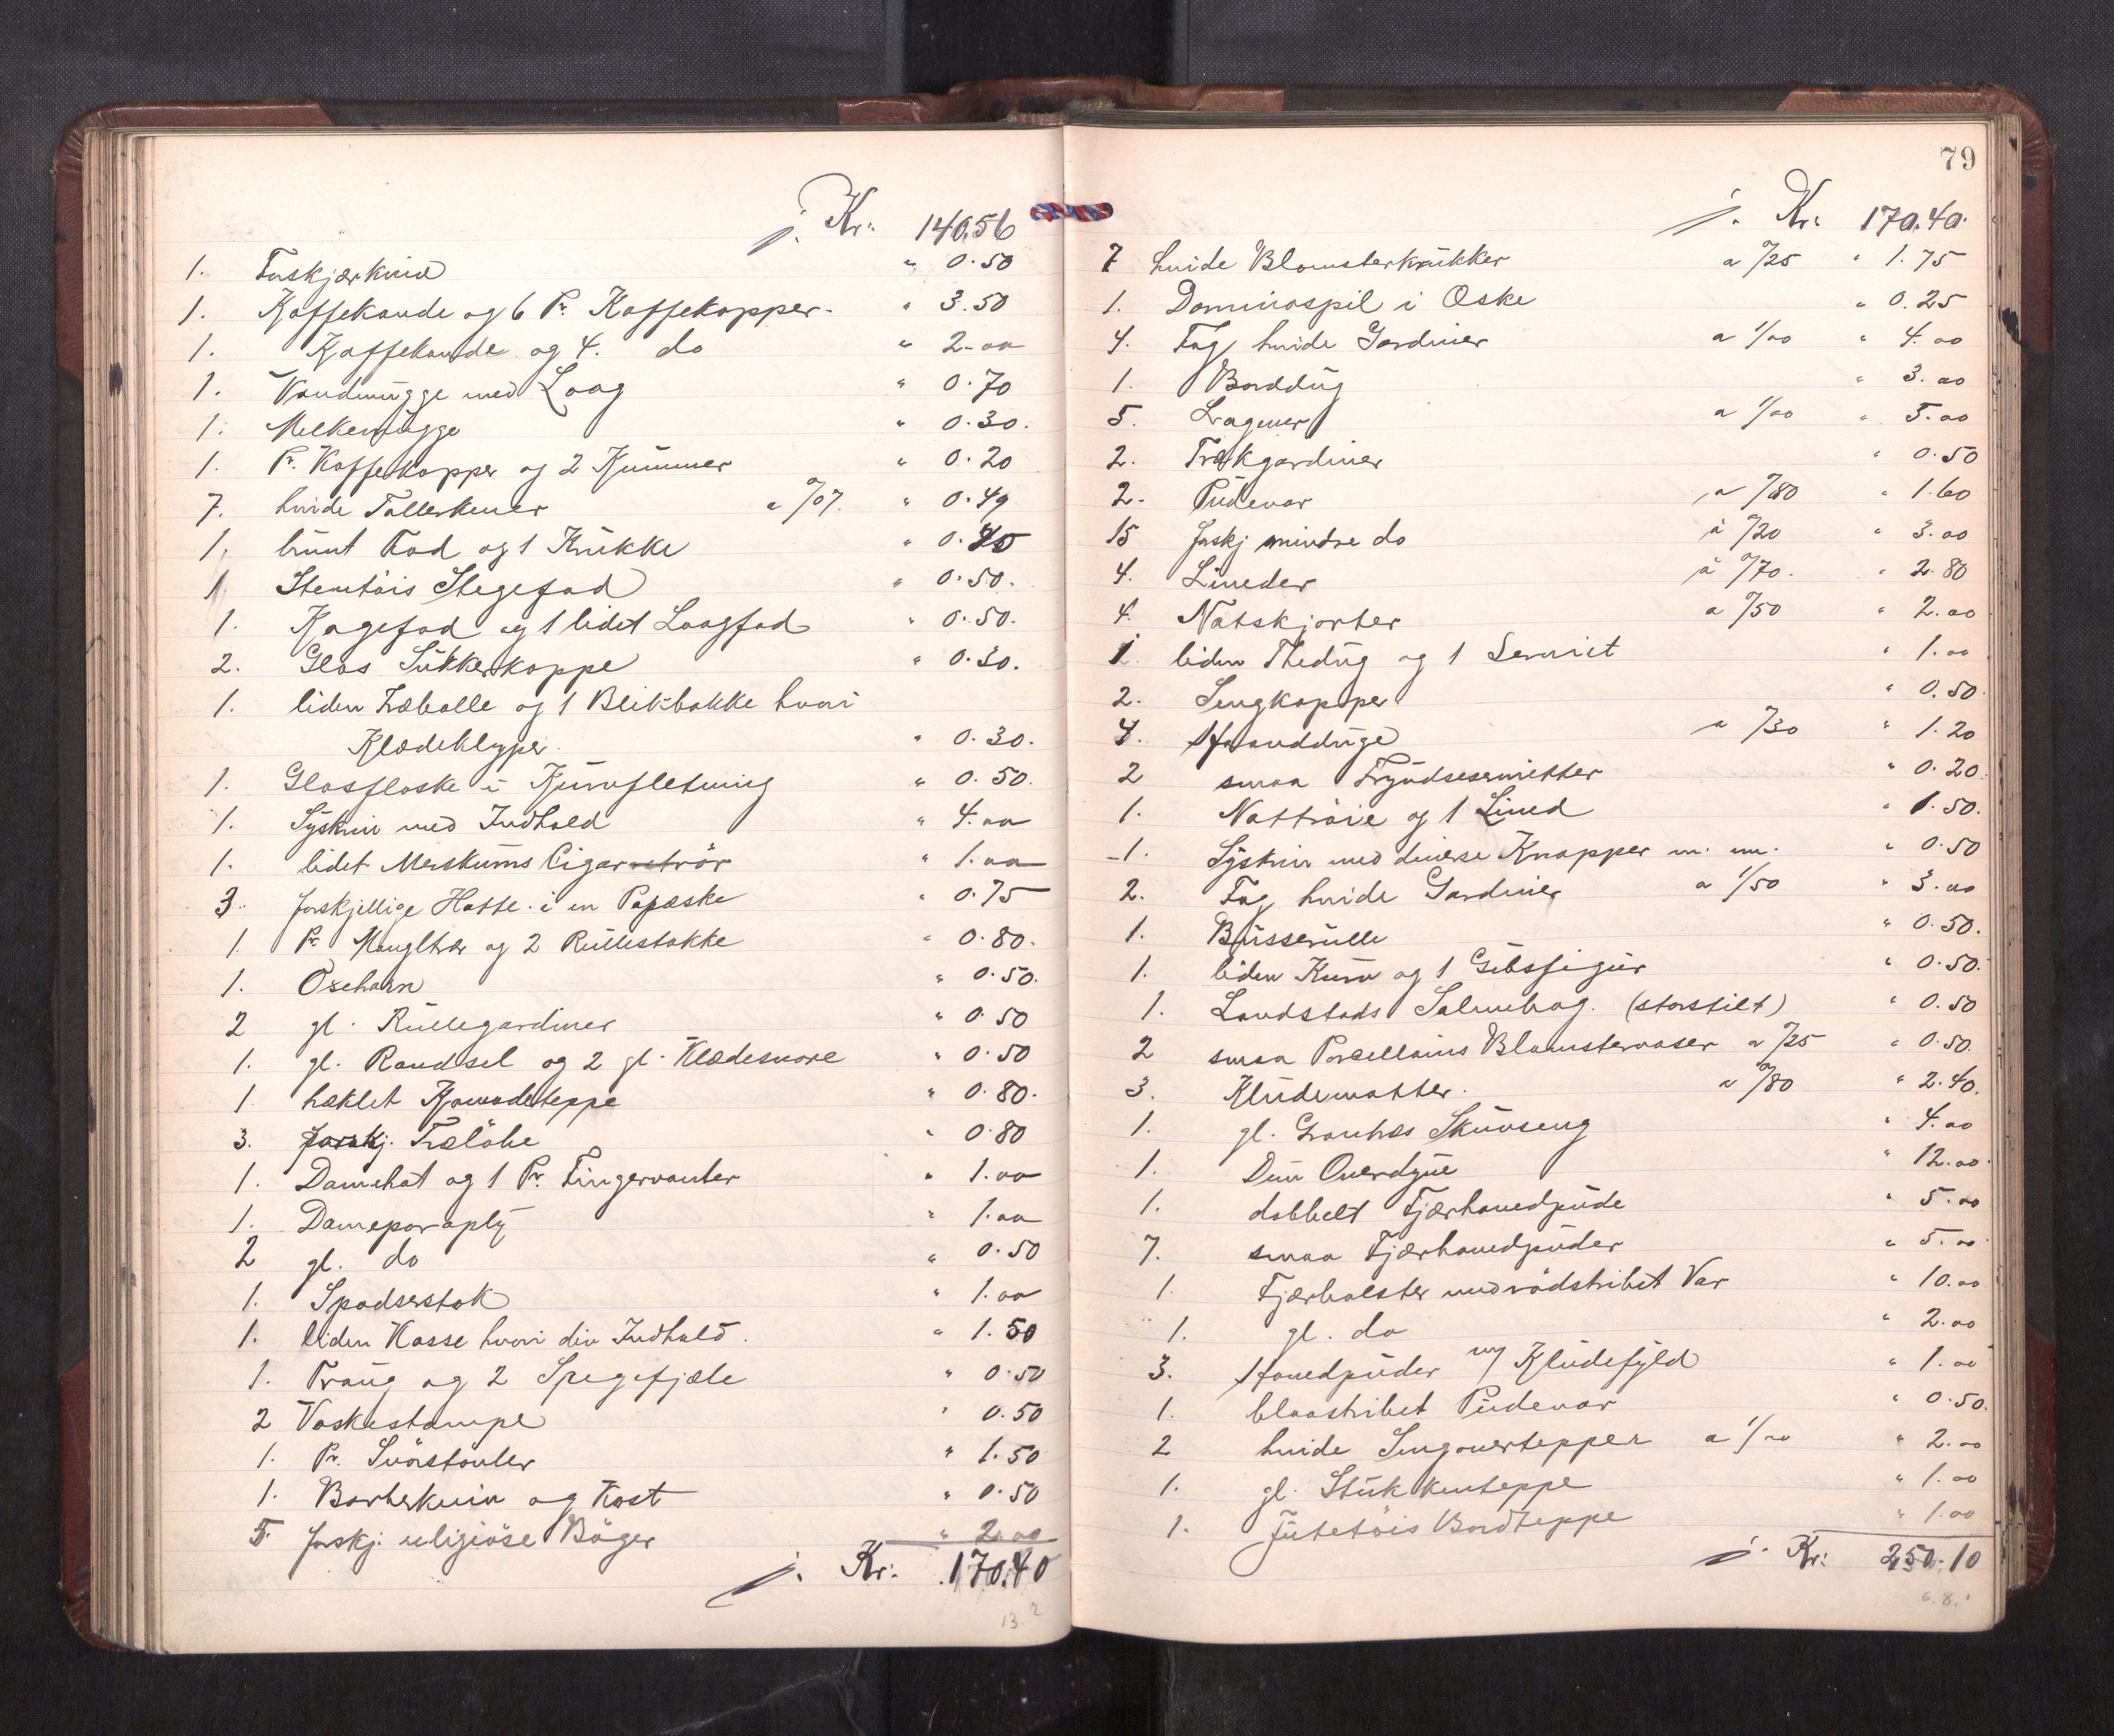 j. Kr: 140.56
1. Forskjærkniv " 0.50
1. Kaffekande og 6 Pr. Kaffekopper. " 3.50
1. Kaffekande og 4. do " 2.00
1. Vandmugge med Laag " 0.70
1. Melkemugge " 0.30.
1. Pr. Kaffekopper og 2 Kummer " 0.20
7. hvide Tallerkener a 0/07. " 0.49
1. brunt Fad og 1 Krukke " 0.45
1 Stentöis Stegefad " 0.50.
1. Kagefad og 1 lidet Laagfad " 0.50.
2. Glas Sukkerkoppe " 0.30.
1. liden Træbolle og 1 Blikbakke hvori
Klædeklyper. " 0.30.
1. Glasflaske i Kurvfletning " 0.50.
1. Syskrin med Indhold " 4.00
1. lidet Merskums Cigarretrör " 1.00
3. forskjellige Hatte i en Papæske " 0.75
1 Pr Mangltrær og 2 Rullestokke " 0.80.
1. Oxehorn " 0.50.
2 gl. Rullegardiner " 0.50
1. gl. Randsel og 2 gl. Klædesnore " 0.50
1. hæklet Komodeteppe " 0.80.
3. forskj. Trælöbe " 0.80
1. Damehat og 1 Pr. Fingervanter " 1.00
1. Dameparaply " 1.00
2 gl. do " 0.50
1. Spadserstok " 1.00
1. liden Kasse hvori div Indhold. " 1.50
1. Traug og 2 Spegefjæle " 0.50
2 Vaskestampe " 0.50
1. Pr. Snörstövler " 1.50
1. Barberkniv og Kost " 0.50
5 forskj. religiöse Böger " 2.00
j. Kr: 170.40
13.2
79
j. Kr: 170.40.
7 hvide Blomsterkrukker a 0/25 " 1.75
1. Dominospil i Æske " 0.25
4. Fag hvide Gardiner a 1/00 " 4.00
1. Borddug " 3.00
5. Lagener a 1/00 " 5.00
2. Trækgardiner " 0.50
2. Pudevar a 0/80 " 1.60
15 forskj mindre do à 0/20 " 3.00
4. Lineder à 0/70. " 2.80
4. Natskjorter a 0/50 " 2.00
1. liden Thedug og 1 Serviet " 1.00
2. Sengkapper " 0.50.
4. Haandduge a 0/30 " 1.20
2 smaa Fryndseservietter " 0.20.
1. Nattröie og 1 Lined " 1.50.
1. Syskrin med diverse Knapper m. m. " 0.50
2. Fag hvide Gardiner a 1/50 " 3.00
1. Busserulle " 0.50.
1. liden Kurv og 1 Gibsfigur " 0.50.
1. Landstads Salmebog. (storstilt) " 0.50
2 smaa Porcellains Blomstervaser a 0/25 " 0.50.
3. Kludematter. a 0/80 " 2.40.
1. gl. Grantræs Skuvseng " 4.00
1. Dun Overdyne " 12.00.
1. dobbelt Fjærhovedpude " 5.00
7. smaa Fjærhovedpuder " 5.00
1. Fjærbolster med rödstribet Var " 10.00
1. gl. do " 2.00
3. Hovedpuder m/ Kludefyld " 1.00
1. blaastribet Pudevar " 0.50.
2 hvide Sengovertepper a 1/00 " 2.00
1. gl. Stukkenteppe " 1.00
1. Jutetöis Bordteppe " 1.00
j. Kr: 250.10
6.8.